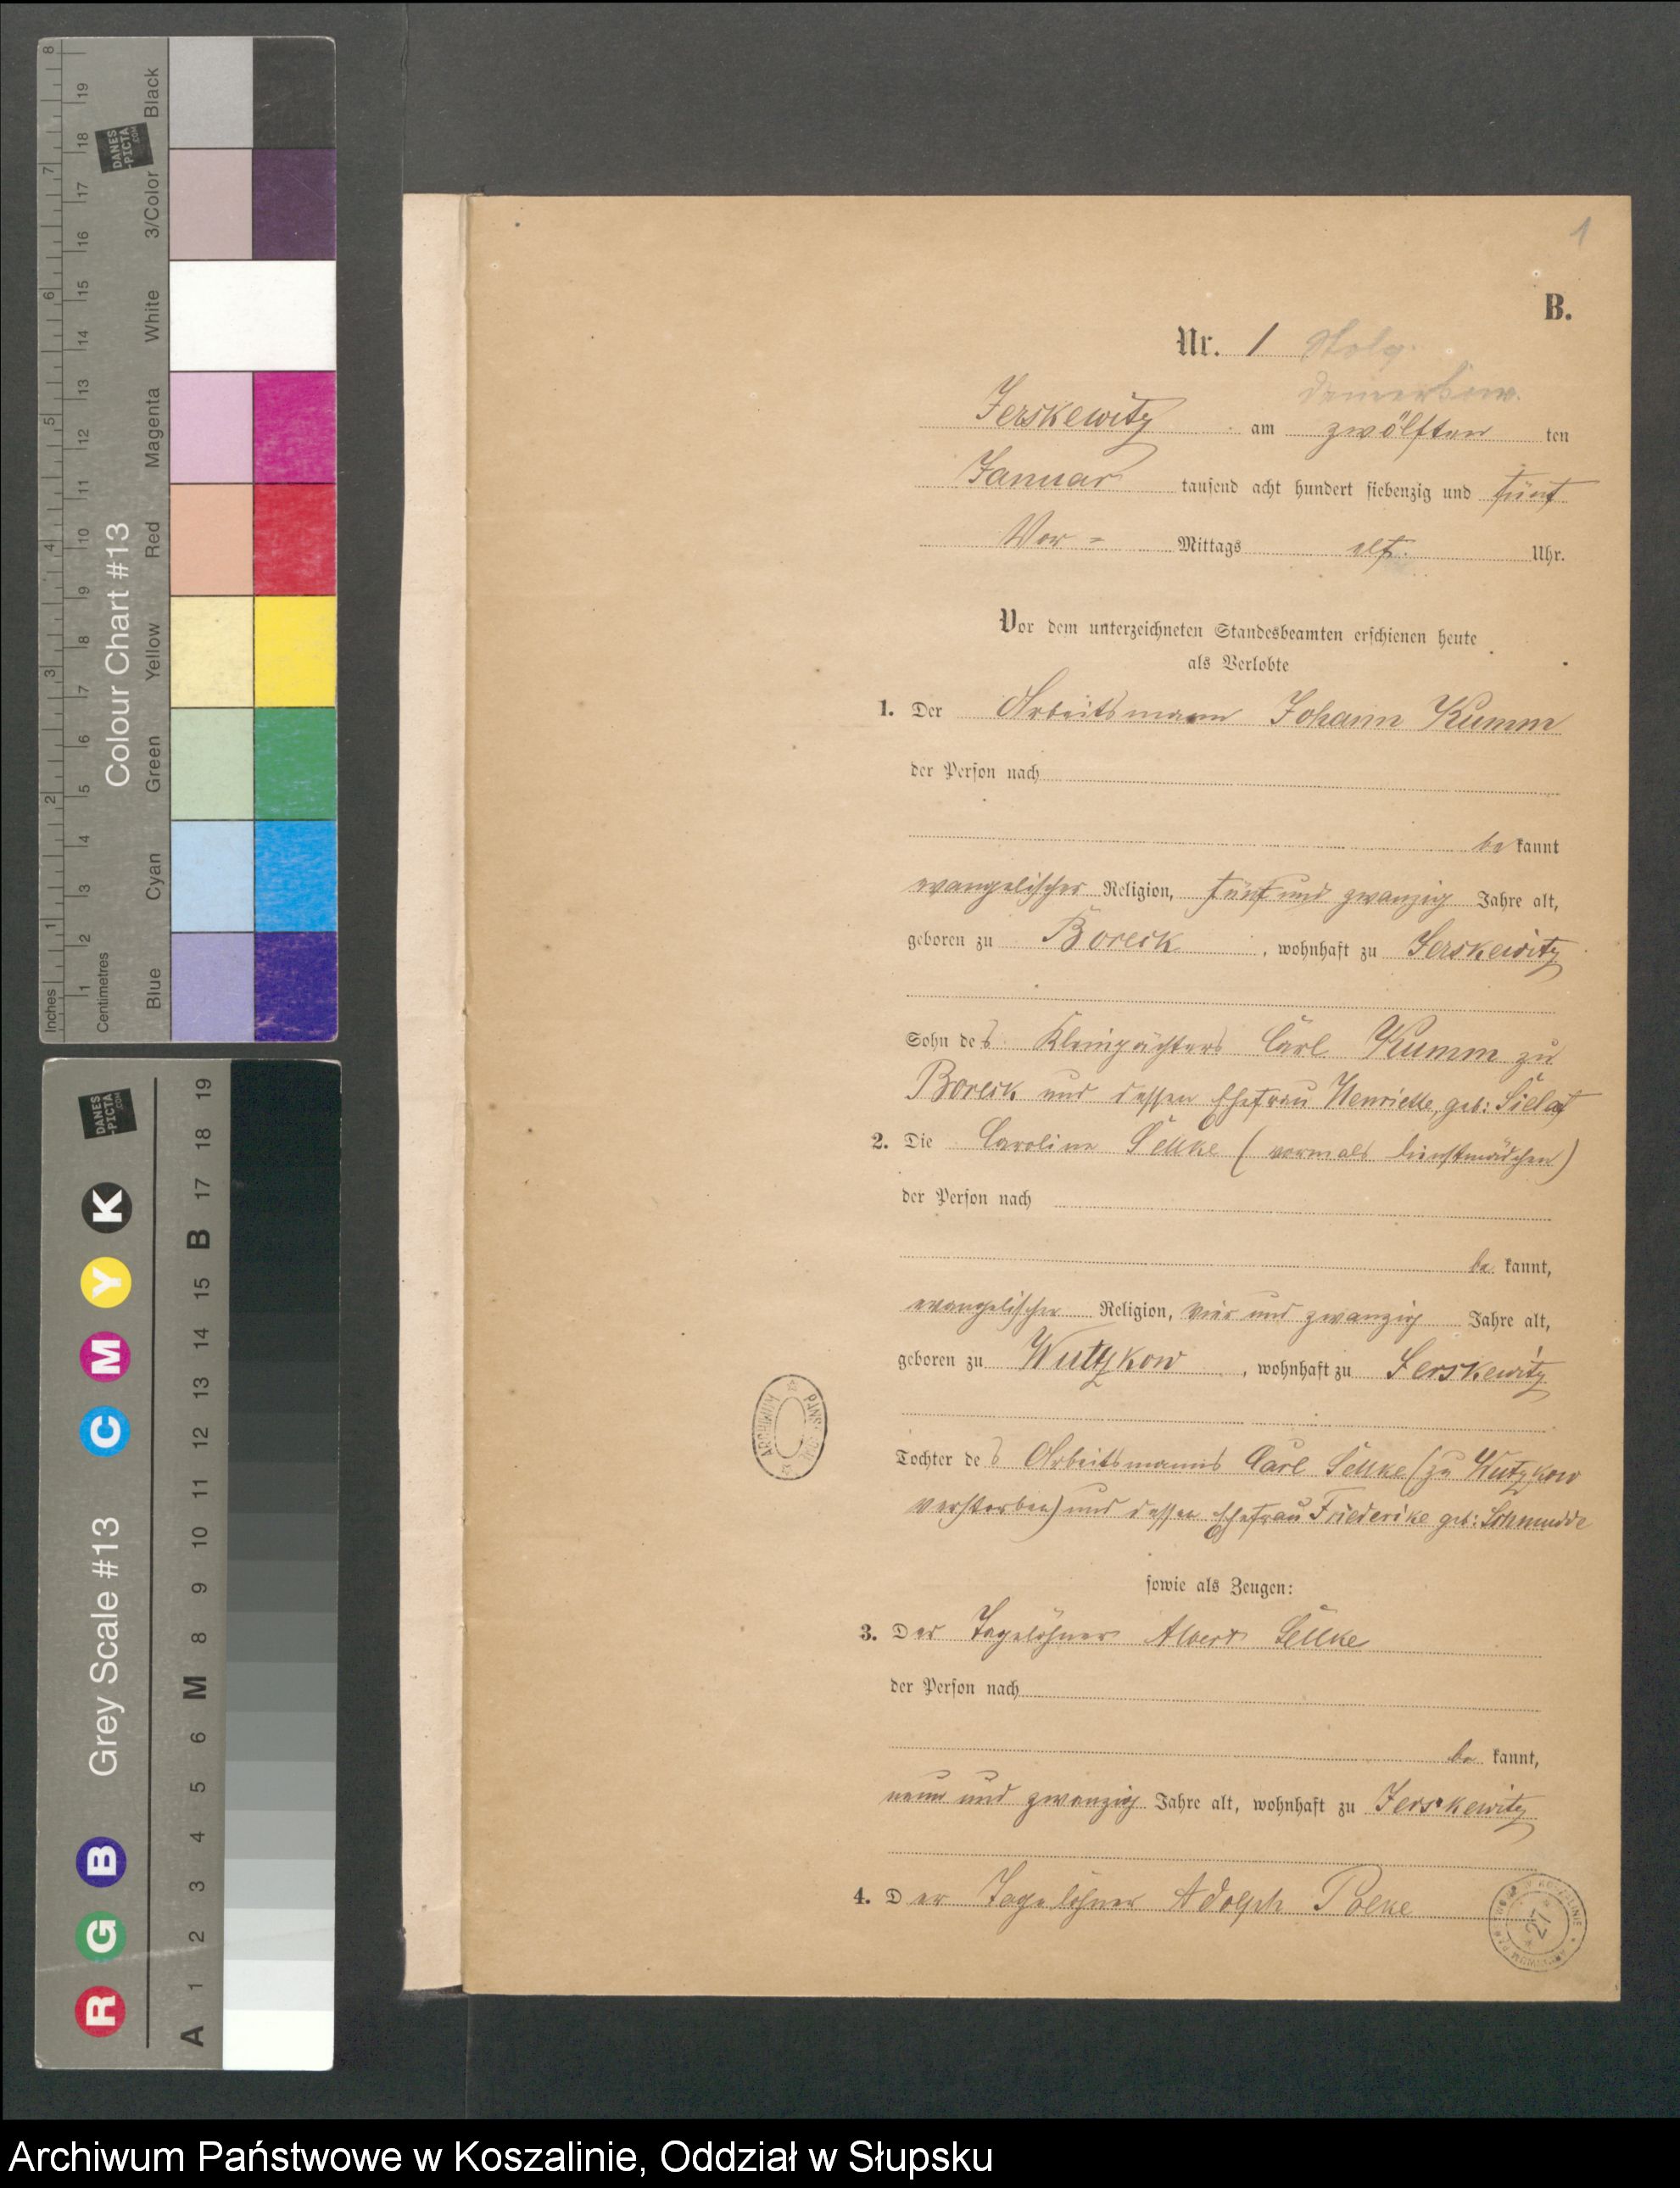 1
B.
Nr. 1 Stolp.
Jerskewitz am zwölften ten
Januar tausend acht hundert siebenzig und fünf
Vor = Mittags elf. Uhr.
Vor dem unterzeichneten Standesbeamten erschienen heute
als Verlobte
1. Der Arbeitsmann Johann Kumm
der Person nach
be kannt
evangelischer Religion, fünf und zwanzig Jahre alt,
geboren zu Boreck, wohnhaft zu Jerskewitz
Sohn des Kleinpächters Carl Kumm zu
Boreck und dessen Ehefrau Henriette, geb:
2. Die Caroline Sellke (vormals Dienstmädchen)
der Person nach
be kannt,
evangelischer Religion, vier und zwanzig Jahre alt,
geboren zu Wutzkow, wohnhaft zu Jerskewitz
Tochter des Arbeitsmanns Carl Sellke (zu Wutzkow
verstorben) und dessen Ehefrau Friederike geb: Schmudde
sowie als Zeugen:
3. Der Tagelöhner Albert Sellke
der Person nach
be kannt,
neun und zwanzig Jahre alt, wohnhaft zu Jerskewitz
4. Der Tagelöhner Adolph
27
ARCHIWUM PAŃSTW.
Colour Chart #13
Inches
Centimetres
1 2 3 4 5 6 7 8
1 2 3 4 5 6 7 8 9 10 11 12 13 14 15 16 17 18 19
Blue Cyan Green Yellow Red Magenta White 3/Color Black
DANES
-PICTA
.COM
Grey Scale #13
R G B C M Y K
A 1 2 3 4 5 6 M 8 9 10 11 12 13 14 15 B 17 18 19
DANES
-PICTA
.COM
Archiwum Państwowe w Koszalinie, Oddział w Słupsku